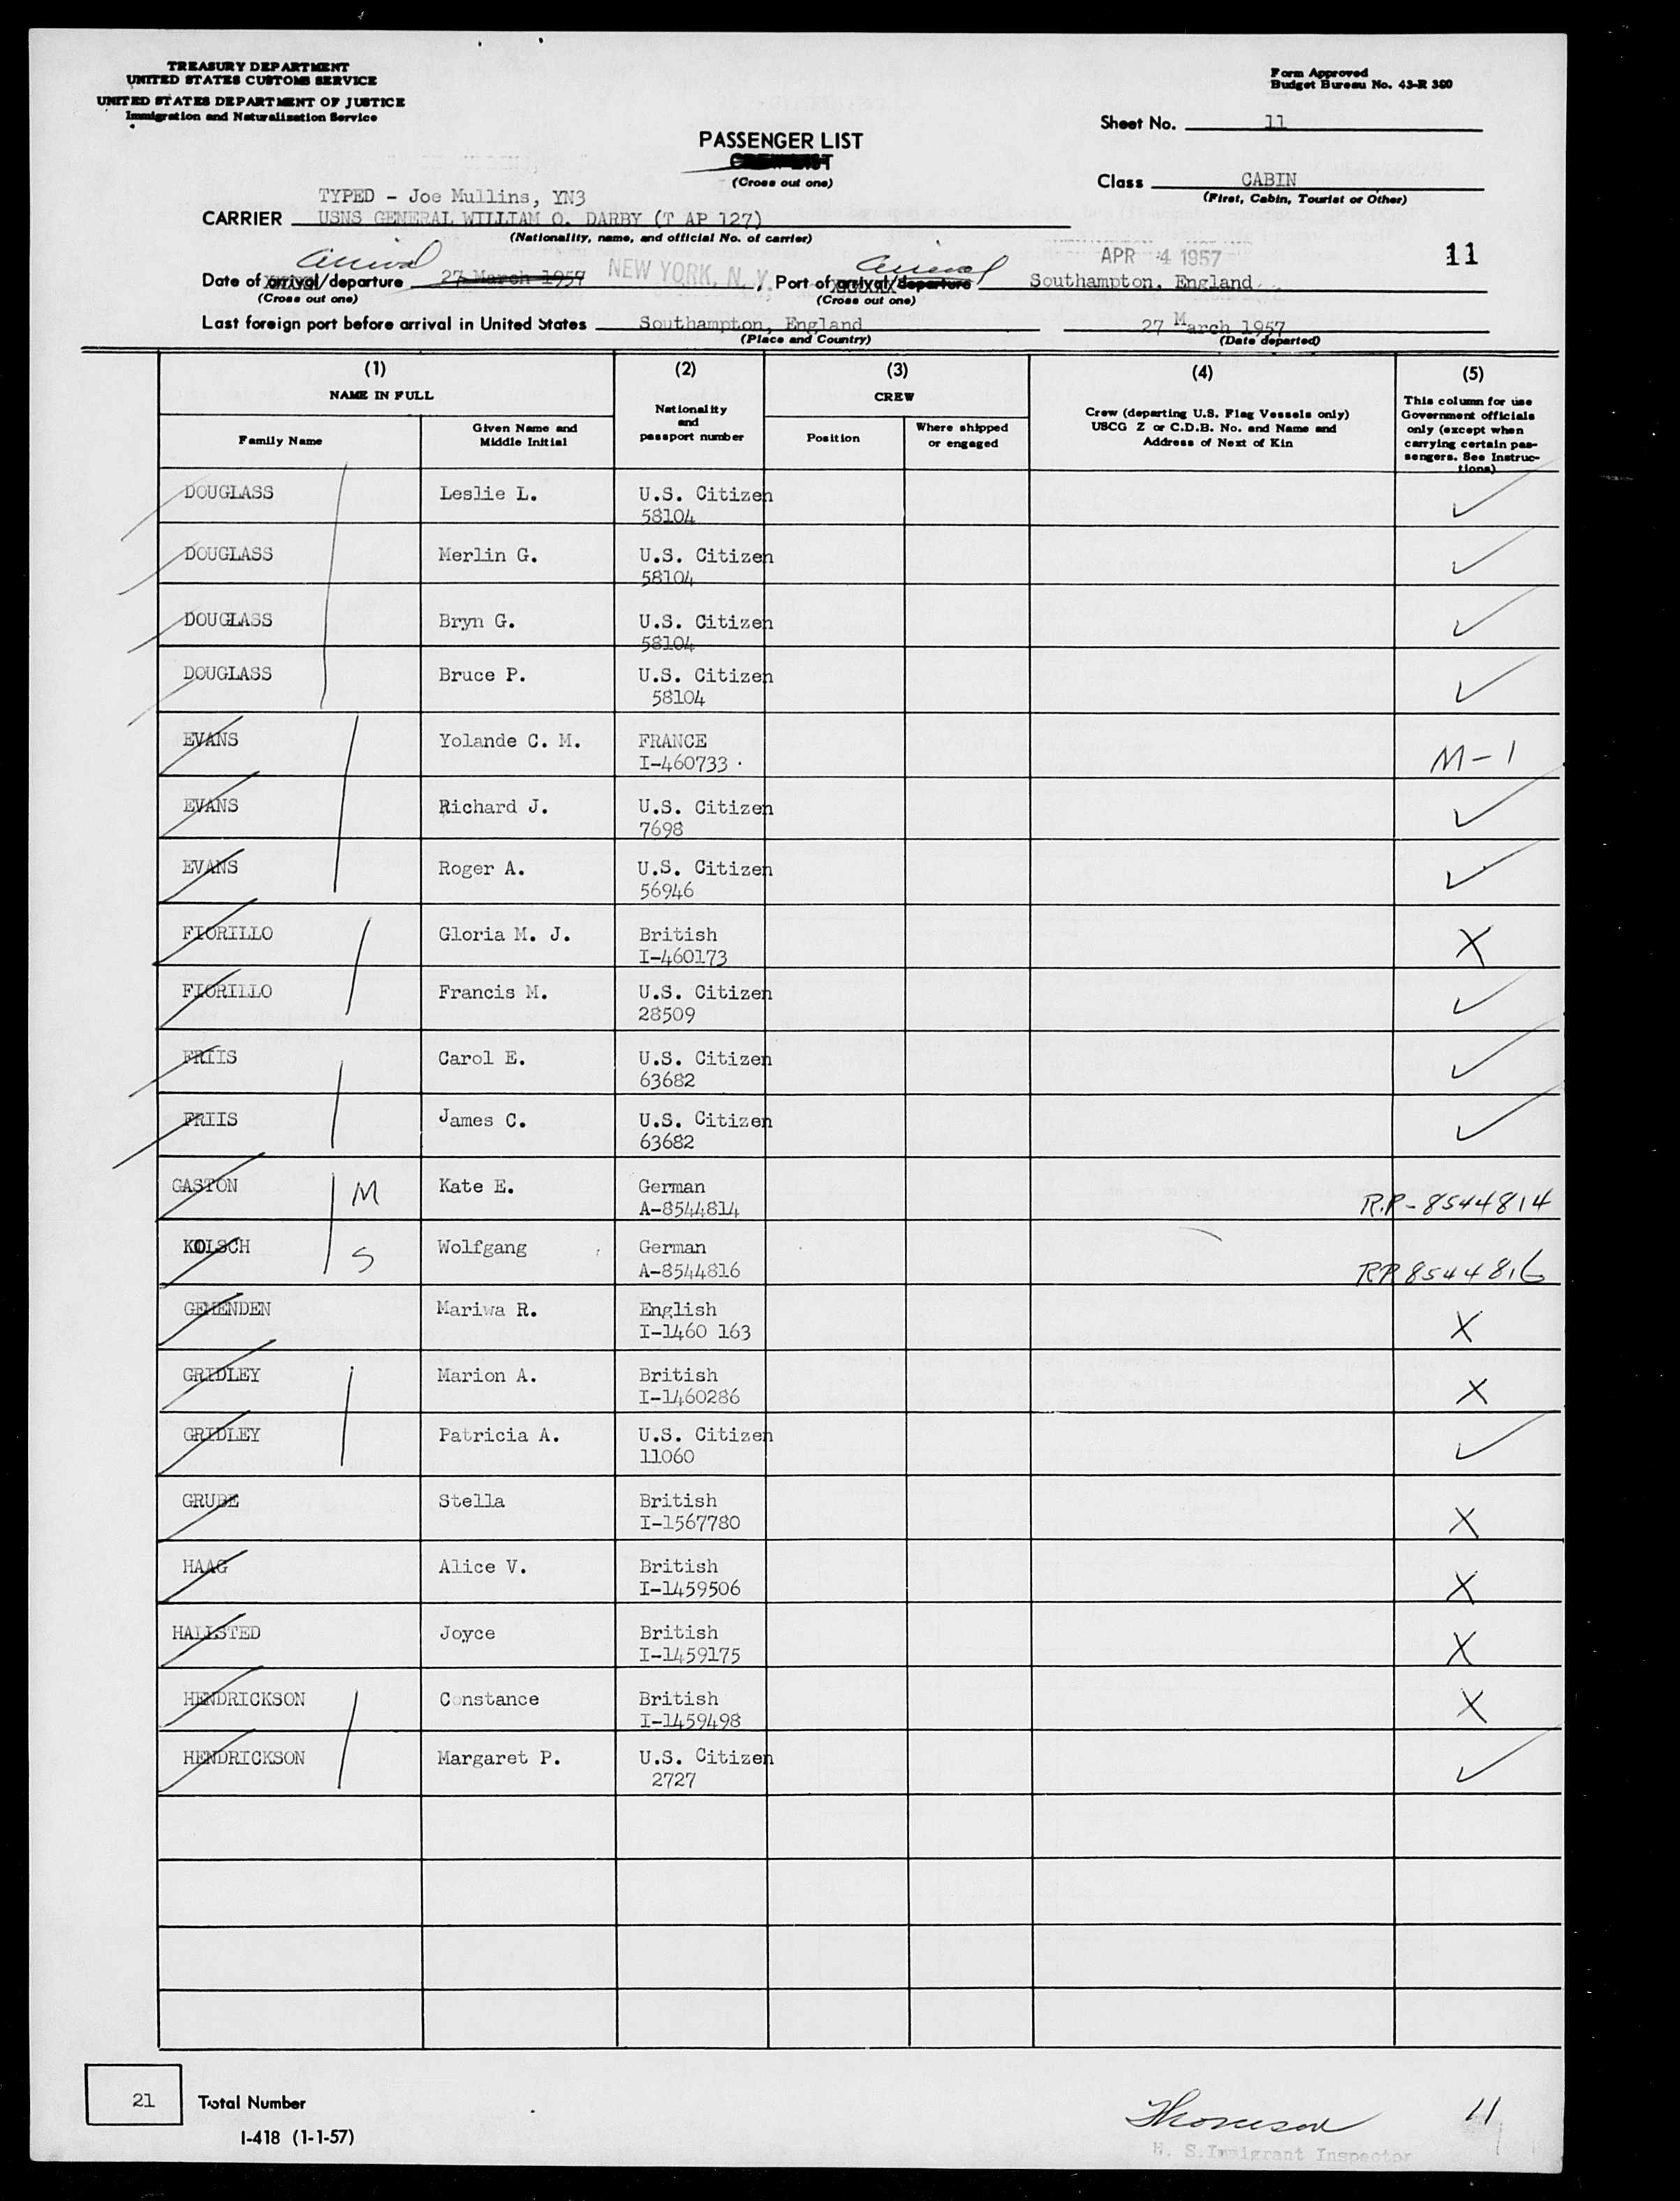 TREASURY DEPARTMENT
UNITED STATES CUSTOMS SERVICE
UNITED STATES DEPARTMENT OF JUSTICE
Immigration and Naturalization Service
Form Approved
Budget Bureau No. 43-R 380
Sheet No. 11
PASSENGER LIST
CREW LIST
(Cross out one)
Class CABIN
(First, Cabin, Tourist or Other)
TYPED - Joe Mullins, YN3
CARRIER USNS GENERAL WILLIAM O. DARBY (T AP 127)
(Nationality, name, and official No. of carrier)
APR 4 1957
11
arrival
arrival
Date of arrival/departure 27 March 1957 NEW YORK, N. Y. , Port of arrival/departure Southampton, England
(Cross out one)
(Cross out one)
Last foreign port before arrival in United States Southampton, England 27 March 1957
(Place and Country)
(Date departed)
(1) (2) (3) (4) (5)
NAME IN FULL
Family Name
Given Name and
Middle Initial
Nationality
and
passport number
CREW
Position
Where shipped
or engaged
Crew (departing U.S. Flag Vessels only)
USCG Z or C.D.B. No. and Name and
Address of Next of Kin
This column for use
Government officials
only (except when
carrying certain pas-
sengers. See Instruc-
tions)
DOUGLASS Leslie L. U.S. Citizen
58104
DOUGLASS Merlin G. U.S. Citizen
58104
DOUGLASS Bryn G. U.S. Citizen
58104
DOUGLASS Bruce P. U.S. Citizen
58104
EVANS Yolande C. M. FRANCE
I-460733 M-1
EVANS Richard J. U.S. Citizen
7698
EVANS Roger A. U.S. Citizen
56946
FIORILLO Gloria M. J. British
I-460173 X
FIORILLO Francis M. U.S. Citizen
28509
FRIIS Carol E. U.S. Citizen
63682
FRIIS James C. U.S. Citizen
63682
GASTON M Kate E. German
A-8544814 R.P-8544814
KOLSCH S Wolfgang German
A-8544816 RP 8544816
GEMENDEN Mariwa R. English
I-1460 163 X
GRIDLEY Marion A. British
I-1460286 X
GRIDLEY Patricia A. U.S. Citizen
11060
GRUBE Stella British
I-1567780 X
HAAG Alice V. British
I-1459506 X
HALLSTED Joyce British
I-1459175 X
HENDRICKSON Constance British
I-1459498 X
HENDRICKSON Margaret P. U.S. Citizen
2727
21 Total Number
I-418 (1-1-57)
Thomson 11
U. S. Immigrant Inspector